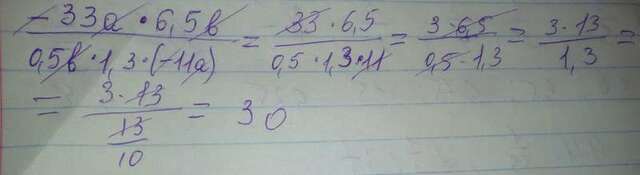 -33a · 6,5b / 0,5b · 1,3 · (-11a) = 33 · 6,5 / 0,5 · 1,3 · 11 = 3 · 6,5 / 0,5 · 1,3 = 3 · 13 / 1,3 =
= 3 · 13 / 13/10 = 30